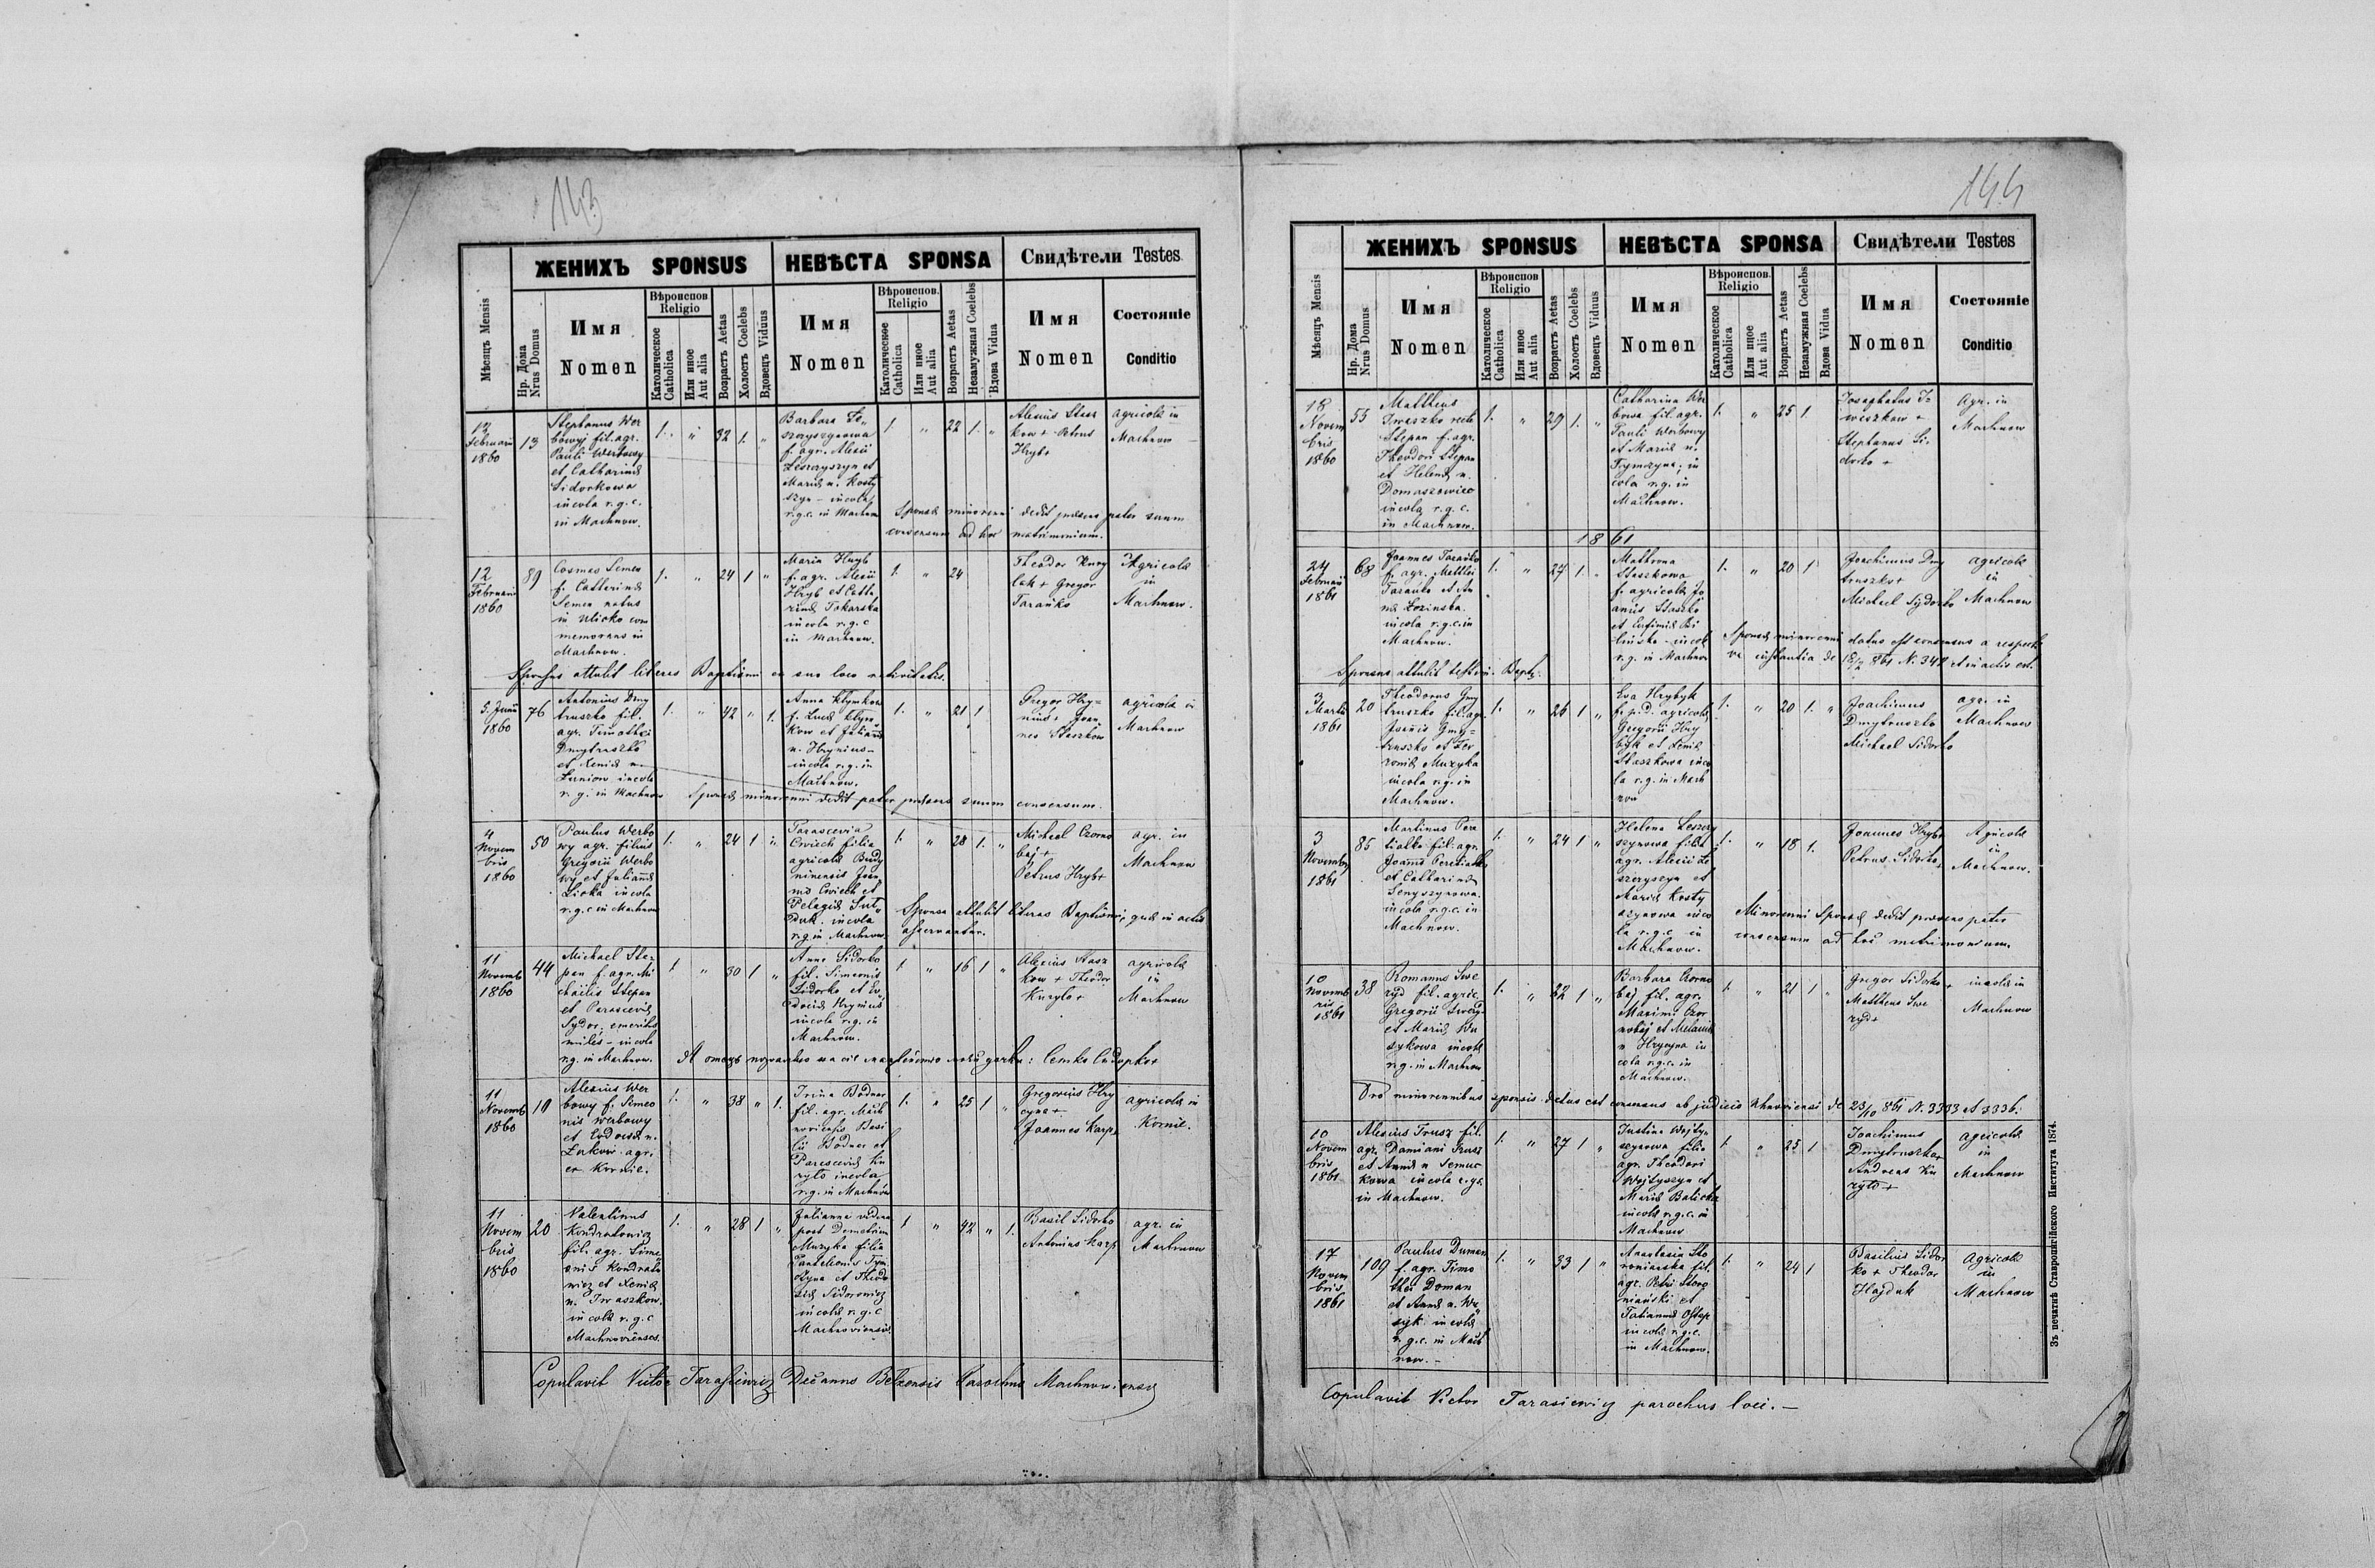 143
ЖЕНИХЪ SPONSUS
НЕВѢСТА SPONSA
Свидѣтели Testes
Мѣсяцъ Mensis
Нр. Дома
Nrus Domus
Имя
Nomen
Вѣроиспов
Religio
Католическое
Catholica
Или иное
Aut alia
Возрастъ Aetas
Холостъ Coelebs
Вдовецъ Viduus
Имя
Nomen
Вѣроиспов.
Religio
Католическое
Catholica
Или иное
Aut alia
Возрастъ Aetas
Незамужная Coelebs
Вдова Vidua
Имя
Nomen
Состояніе
Conditio
12
Februarii
1860
13
Stephanus Wer
bowyj fil. agr.
Pauli Werbowy
et Catharinæ
Sidorkowa
incola r.g.c.
in Machnow.
1. " 32 1. "
Barbara Le
szczyszynowa
f. agr. Alexii
Leszczyszyn et
Mariæ n. Kosty
szyn - incola
r.g.c. in Machnow
1 " 22 1. "
Alexius Stasz
kow + Petrus
Hryb+
agricola in
Machnow
Sponsæ minorenni dedit præsens pater suum
consensum ad hoc matrimonium.
12
Februarii
1860
89
Cosmas Semen
f. Catharinæ
Semen natus
in Ulicko com
memorans in
Machnow.
1. " 24 1 "
Maria Hryb
f. agr. Alexii
Hryb et Catha
rinæ Tokarska
incola r.g.c
in Machnow.
1. " 24
Theodor Kury
lak + Gregor
Tarańko
Agricola
in
Machnow.
Sponsus attulit literas Baptismi ex suo loco nativitatis.
5. Junii
1860
76
Antonius Dmy
truszko fil.
agr. Timothei
Dmytruszko
et Xeniæ n.
Luniow incola
r. g. in Machnow
1. " 42 " 1.
Anna Klymkow
f. Lucæ Klym
kow et Julianæ
n. Hrynius-
incola r.g. in
Machnow.
1. " 21 1
Gregor Hry=
nius+ Joan
nes Staszkow
agricola in
Machnow
Sponsæ minorenni dedit pater præsens suum consensum.
4
Novem
bris
1860
50
Paulus Werbo
wy agr. filius
Gregorii Werbo
wy et Julianæ
incola
r.g.c in Machnow
1. " 24 1 "
Parascevia
Cwiech filia
agricolæ
Joan
nis Cwiech et
Pelagiæ
incola
r.g. in Machnow
1. " 28 1. "
Michael Czorno
baj +
Petrus Hryb+
agr. in
Machnow
Sponsa attulit literas Baptismi, quæ in actis
asservantur.
11
Novemb
1860
44
Michael Ste
pan f. agr. Mi
chaelis Stepan
et Parasceviæ
Sydor, emeritus
miles - incola
r.g. in Machnow.
1 " 30 1 "
Anna Sidorko
fil. Simeonis
Sidorko et Eu
dociæ Hrynius
incola r.g. in
Machnow.
1 " 16 1 "
Alexius Stasz
kow + Theodor
Kuryło+
agricola
in
Machnow
11
Novemb
1860
10
Alexius Wer
bowy f. Simeo
nis Werbowy
et Eudociæ n.
Żukow. agr.
ex Kornie.
1. " 38 " 1.
Irina Bodnar
fil. agr. Mach
noviensis Basi
lii Bodnar et
Parasceviæ Ku
ryło incola
r.g. in Machnow
1. " 25 1 "
Gregorius Hry
cyna +
Joannes Karp+
agricola in
Kornie.
11
Novem
bris
1860
20
Valentinus
Kondratowicz
fil. agr. Sime
onis Kondrato
wicz et Xeniæ
n. Iwaszkow.
incola r. g. c
Machnoviensis
1. " 28 1 "
Julianna vidua
post Demetrium
Muzyka filia
Panteleonis Tym
czyna et Theodo
siæ Sidorowicz
incola r. g. c
Machnoviensis
1 " 42 " 1.
Basil Sidorko
Antonius Karp
agr. in
Machnow
Copulavit Victor Tarasiewicz Decanus Belzensis Parochus Machnowiensis
144
ЖЕНИХЪ SPONSUS
НЕВѢСТА SPONSA
Свидѣтели Testes
Мѣсяцъ Mensis
Нр. Дома
Nrus Domus
Имя
Nomen
Вѣроиспов
Religio
Католическое
Catholica
Или иное
Aut alia
Возрастъ Aetas
Холостъ Coelebs
Вдовецъ Viduus
Имя
Nomen
Вѣроиспов.
Religio
Католическое
Catholica
Или иное
Aut alia
Возрастъ Aetas
Незамужная Coelebs
Вдова Vidua
Имя
Nomen
Состояніе
Conditio
18
Novem
bris
1860
55
Mattheus
Iwaszko recte
Stepan f. agr.
Theodori Stepan
et Helenæ n.
Domaszowicz
incola r. g. c.
in Machnow.
1. " 29 1. "
Catharina Wer
bowa fil. agr.
Pauli Werbowy
et Mariæ n.
Tymczyna. in
cola r.g. in
Machnow.
1. " 25 1
Josaphatus I
waszkow +
Stephanus Si
dorko +
Agr. in
Machnow
1861
24
Februarii
1861
68
Joannes Tarańko
f. agr. Matthei
Tarańko et An
næ Łozinska.
incola r.g.c. in
Machnow.
1. " 27 1. "
Mathrona
Staszkowa
f. agricolæ Jo
annis Staszko
et Eufimiæ
incola
r. g. in Machnow
1. " 20 1
Joachimus Dmy
truszko+
Michael Sydorko
agricola
in
Machnow
Sponsæ minorenni datus est consensus a respecti
va instantia de 18/2 861 N. 342 et in actis est.
Sponsus attulit testim. Bapt.
3
Martii
1861
20
Theodorus Dmy
truszko fil. agr.
Joannis Dmy=
truszko et Fev
roniæ Muzyka
incola r.g. in
Machnow.
1. " 26 1 "
Eva Hrybyk
f. p.d. agricolæ
Gregorii Hry
byk et Xeniæ
Staszkowa inco
la r. g. in Mach
now
1. " 20 1. "
Joachimus
Dmytruszko
Michael Sidorko
agr. in
Machnow
3
Novemb
1861
85
Martinus Pere
tiatko fil. agr.
Joannis Peretiatko
et Catharinæ
Senyszynowa.
incola r.g.c. in
Machnow.
1. " 24 1 "
Helena Leszczy
szynowa filia
agr. Alexii Le
szczyszyn et
Mariæ Kosty
szynowa inco
la r.g.c. in
Machnow.
1. " 18 1.
Joannes Hryb+
Petrus Sidorko+
Agricola
in
Machnow.
Minorenni Sponsæ dedit præsens pater
consensum ad hoc matrimonium.
10
Novemb
ris
1861
38
Romanus Swe
ryd fil. agric.
Gregorii Sweryd
et Mariæ Wa
sykowa incola
r.g. in Machnow
1. " 22 1 "
Barbara Czorno
baj fil. agr.
Maximi Czor
nobaj et Melaniæ
n Hrycyna in
cola r.g.c. in
Machnow.
1. " 21 1 "
Gregor Sidorko +
Mattheus Swe
ryd+
incola in
Machnow
Pro minorennibus sponsis datus est consensus ab judicio Uhnoviensi de 23/10 861 N. 3333 et 3336.
10
Novem
bris
1861
Alexius Trusz fil.
agr. Damiani Trusz
et Annæ n Semucz
kowa incola r.g.c.
in Machnow.
1. " 27 1 "
Justina Wojty
szynowa filia
agr. Theodori
Wojtyszyn et
Mariæ Balicka
incola r.g.c. in
Machnow
1. " 25 1
Joachimus
Dmytruszko+
Andreas Ku
ryło +
agricola
in
Machnow
17
Novem
bris
1861
109
Paulus Duman
f. agr. Timo
thei Doman
et Annæ n. Wa
syk. incola
r. g.c. in Mach
now. -
1. " 33 1 "
Anastasia Sto
roniańska fil.
agr. Petri Storo
niański et
Tatiannæ Ostap
incola r.g.c.
in Machnow.
1. " 24 1
Basilius Sidor
ko + Theodor
Hajduk
Agricola
in
Machnow
Copulavit Victor Tarasiewicz parochus loci. -
Зъ печатнѣ Ставропигійского Института 1874.